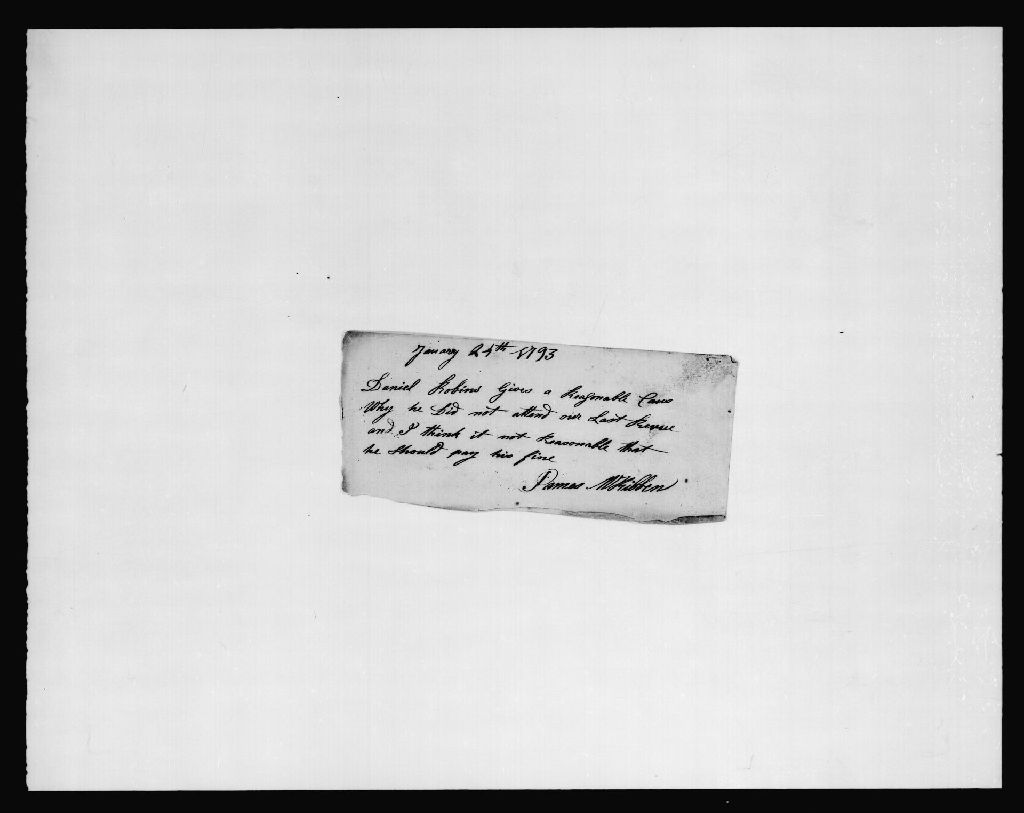 January 25th 1793
Daniel Robins Gives a Reasonable Caus
Why he Did not attend our Last Revue
and I think it not Reasonable that
he Should pay his fine
James McKibben